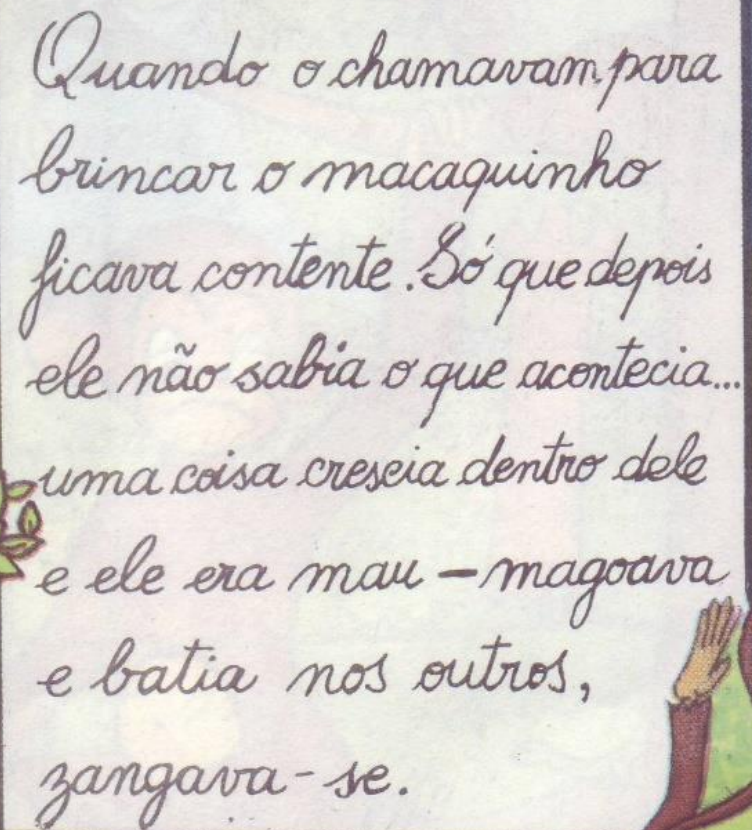 Quando o chamavam para
brincar o macaquinho
ficava contente. Só que depois
ele não sabia o que acontecia...
uma coisa crescia dentro dele
e ele era mau - magoava
e batia nos outros,
zangava-se.